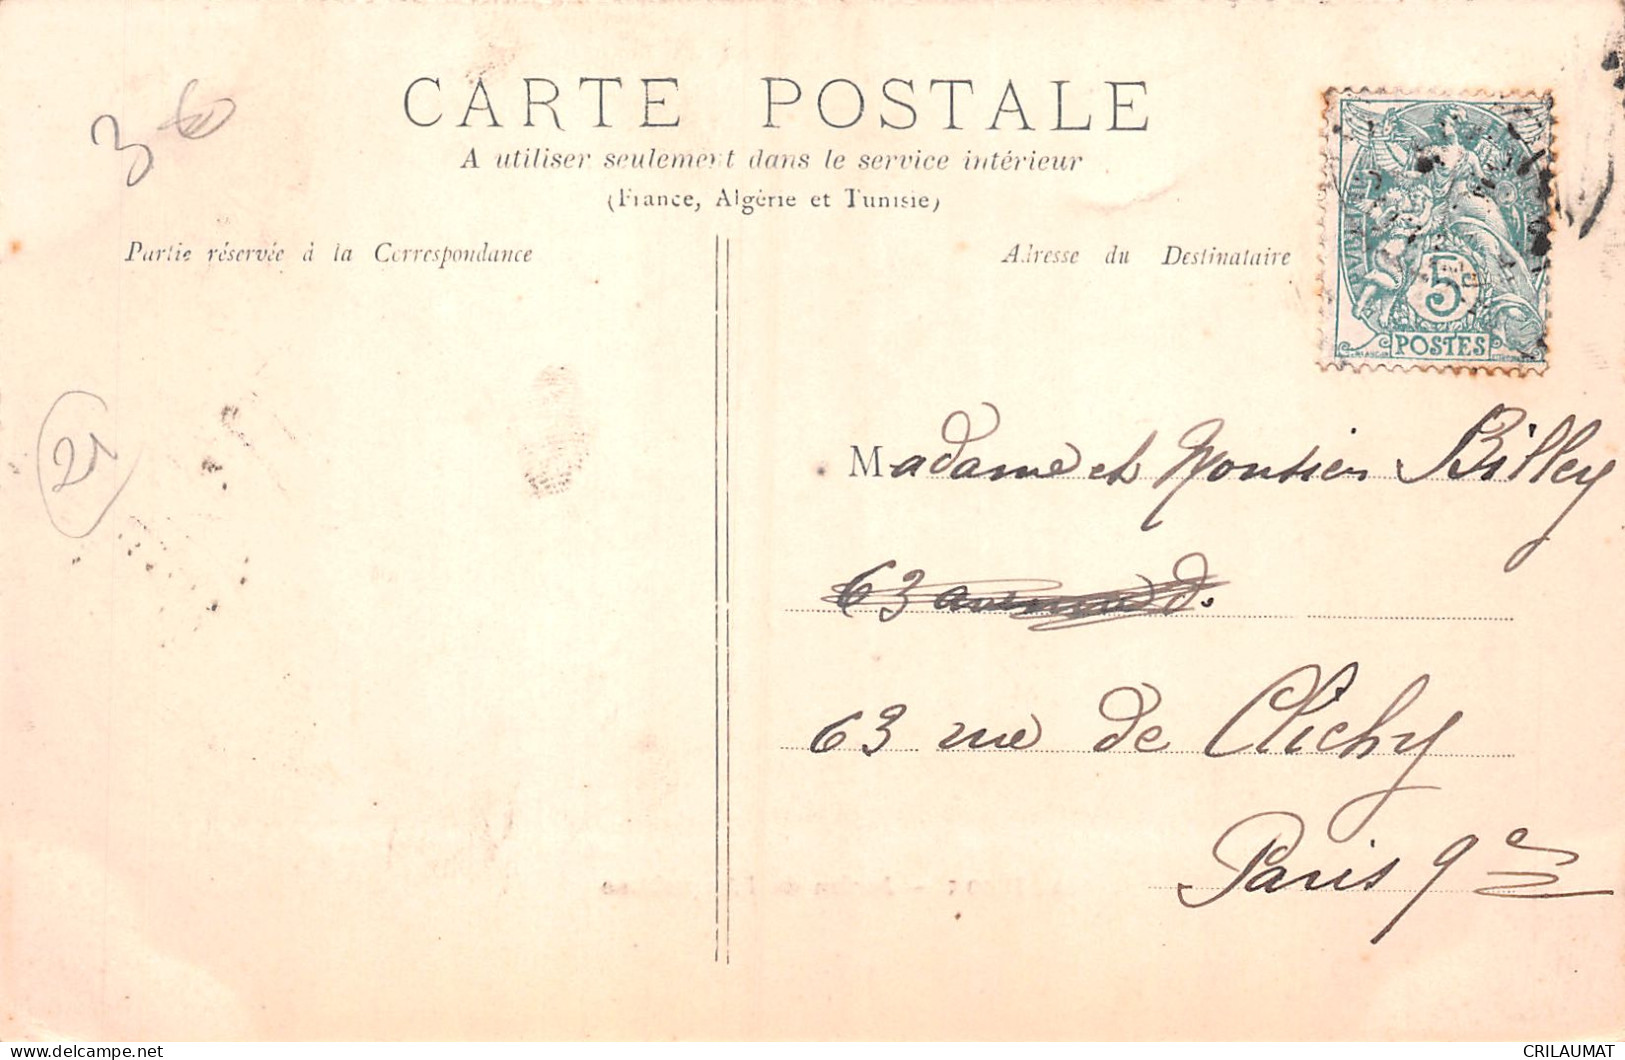 CARTE POSTALE
A utiliser seulement dans le service intérieur
(France, Algérie et Tunisie)
Partie réservée à la Correspondance
Adresse du Destinataire
5c
POSTES
3
21
Madame et Monsieur Billey
63 avenue d.
63 rue de Clichy
Paris 9e
CRILAUMAT